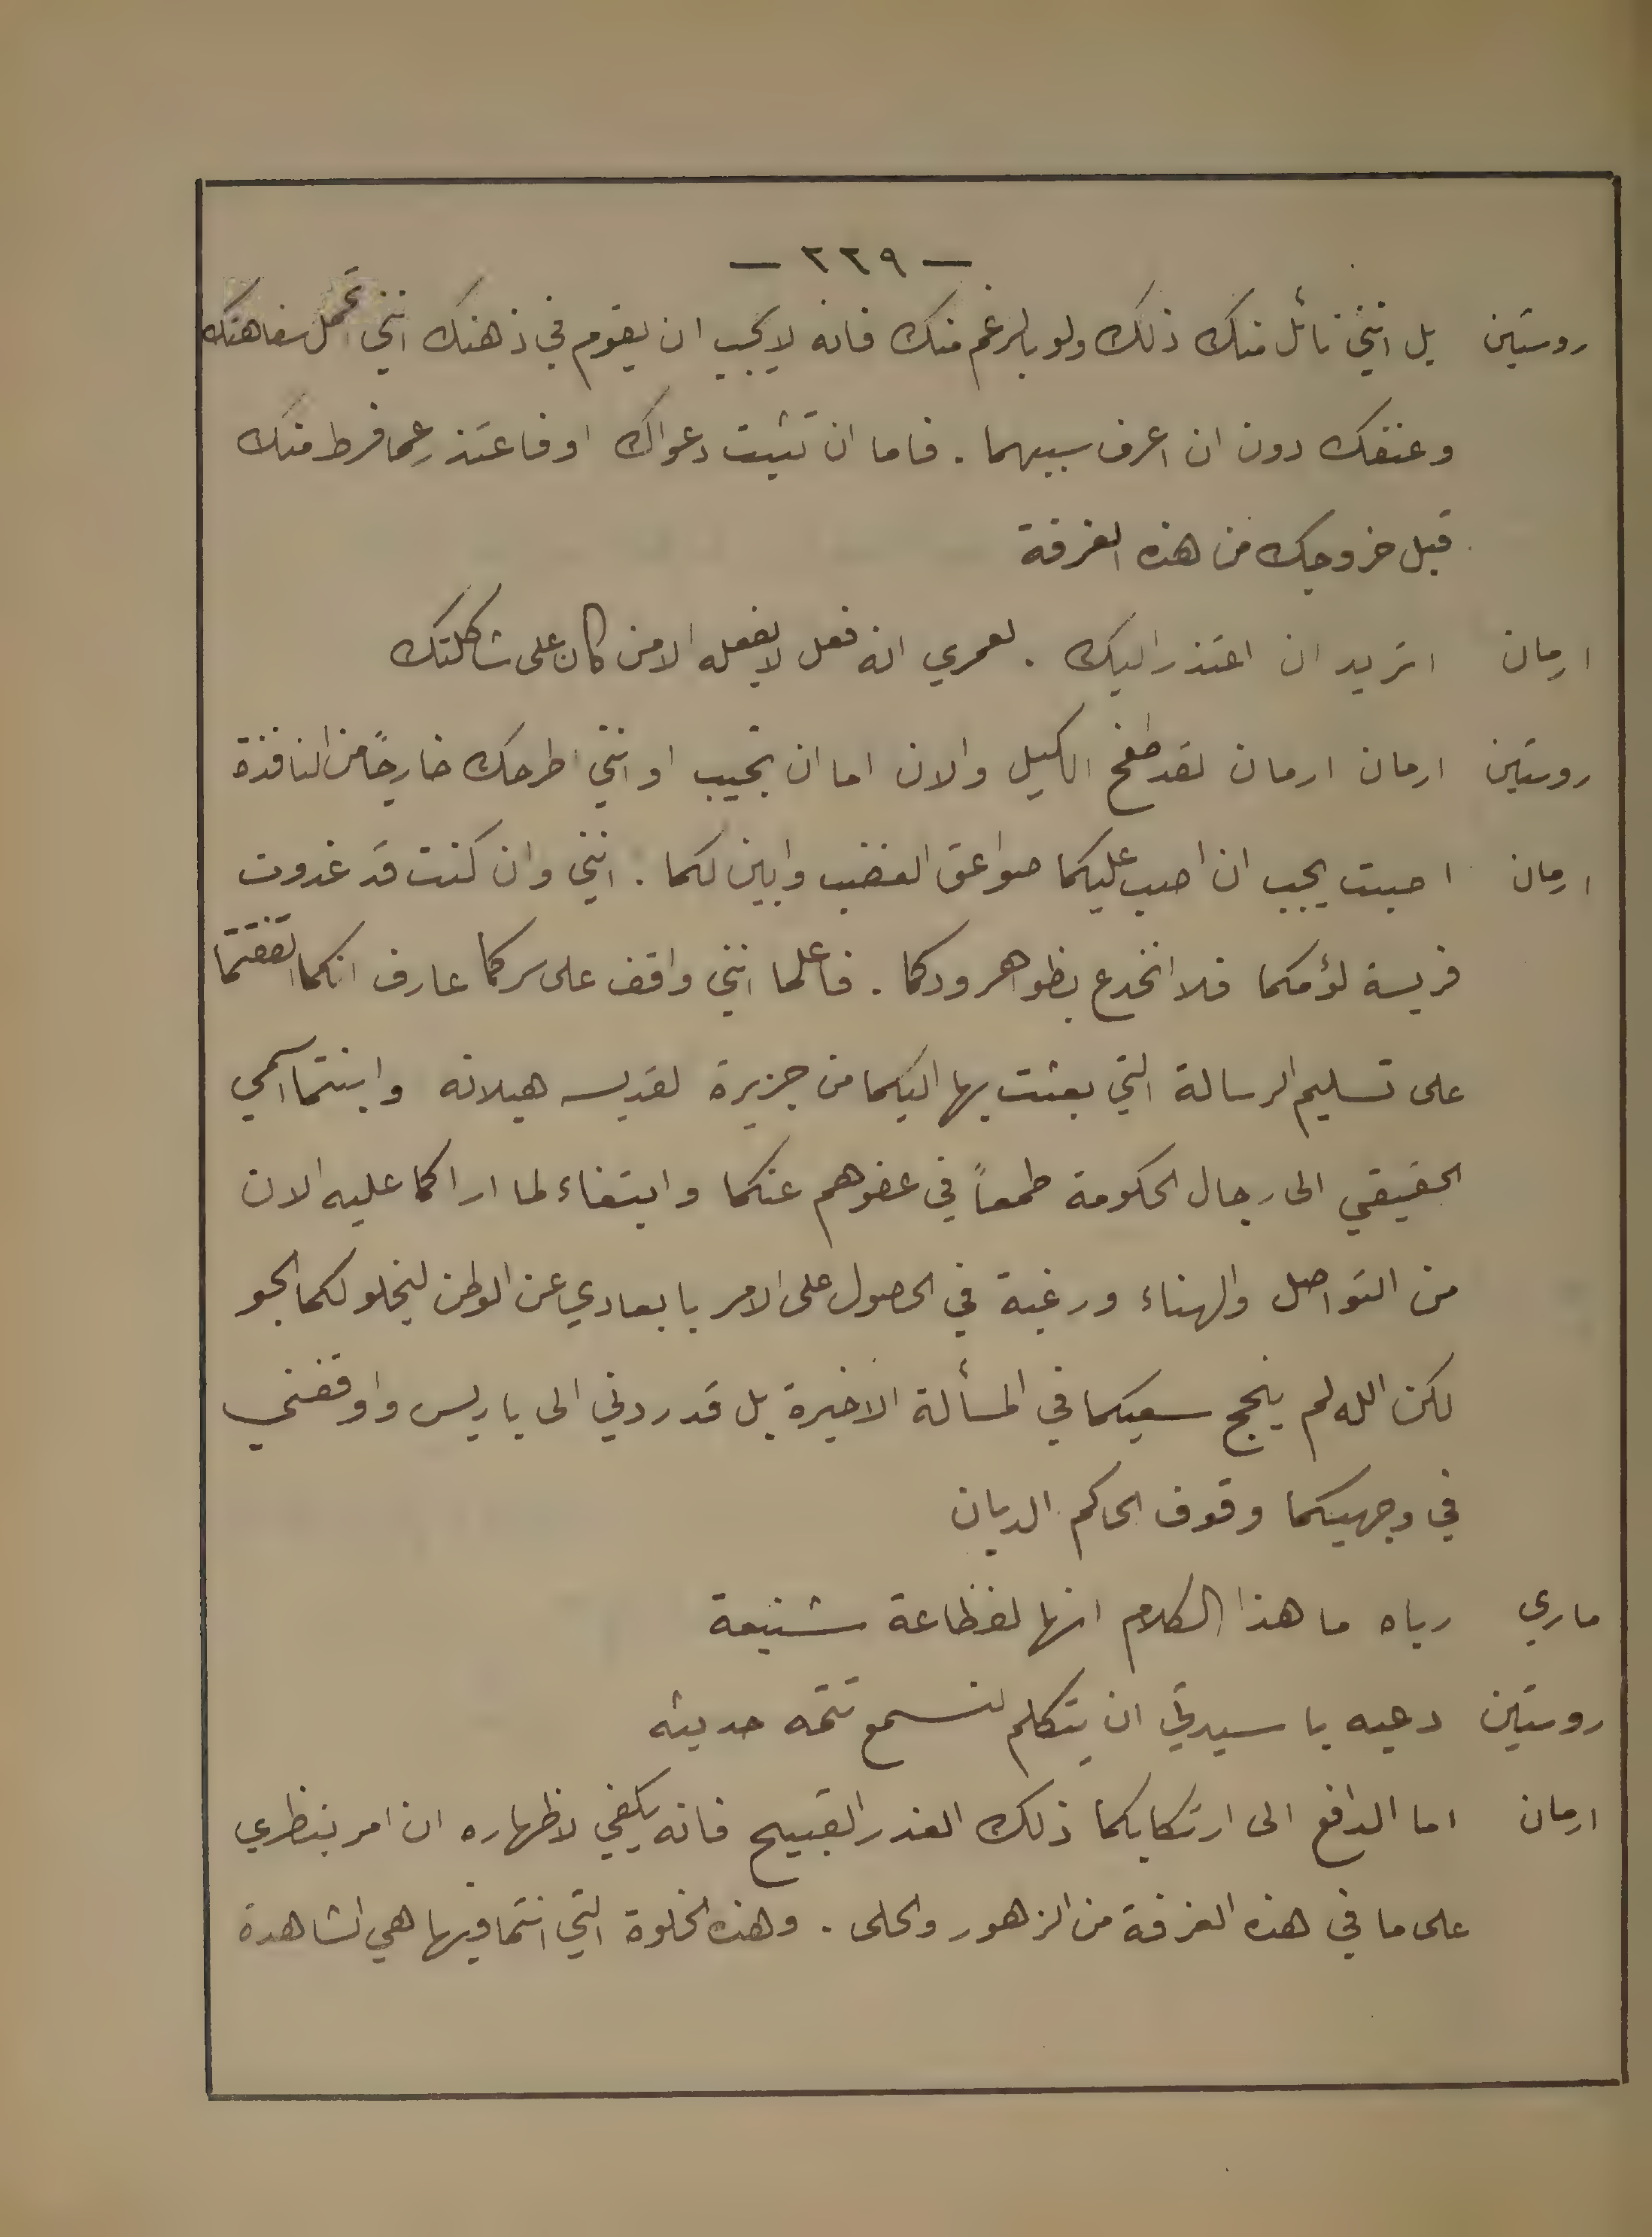 — ٢٢٩ —
روستين بل انني نائل منك ذلك ولو بالرغم منك فانه لا يجب ان يقوم في ذهنك انني اتحمل سفاهتك
وعنفك دون ان اعرف سببهما . فاما ان تثبت دعواك او فاعتذر عما فرط منك
قبل خروجك من هذه الغرفة
ارمان اتريد ان اعتذر اليك . لعمري انه فعل لا يفعله الا من كان على شاكلتك
روستين ارمان ارمان لقد طفح الكيل والان اما ان تجيب او انني اطرحك خارجًا من النافذة
ارمان اصبت يجب ان اصب عليكما صواعق الغضب وابين لكما . انني وان كنت قد غدوت
فريسة لؤمكما فلا انخدع بظواهر ودكما . فاعلما انني واقف على سركما عارف انكما اتفقتما
على تسليم الرسالة التي بعثت بها اليكما من جزيرة لقديسه هيلانه وابنتما اسمي
الحقيقي الى رجال الحكومة طمعاً في عفوهم عنكما وابتغاء لما اراكما عليه الان
من التواصل والهناء ورغبة في الحصول على الامر بابعادي عن الوطن ليخلو لكما الجو
لكن الله لم ينجح سعيكما في المسألة الاخيرة بل قد ردني الى باريس واوقفني
في وجهيكما وقوف الحاكم الديان
ماري رباه ما هذا الكلام انها لفظاعة شنيعة
روستين دعيه يا سيدتي ان يتكلم لنسمع تتمه حديثه
ارمان اما الدافع الى ارتكابكما ذلك الغدر القبيح فانه يكفي لاظهاره ان امر بنظري
على ما في هذه الغرفة من الزهور والحلى . وهذه الخلوة التي انتما فيها هي الشاهدة